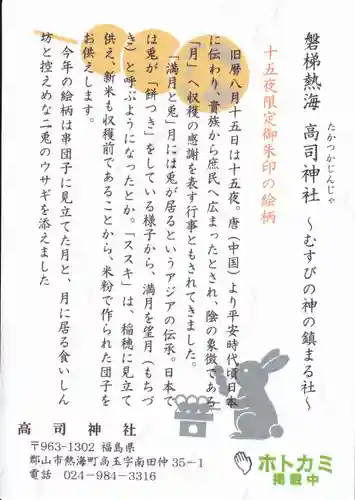 磐梯熱海 高司神社 ～むすびの神の鎮まる社～
たかつかじんじゃ
十五夜限定御朱印の絵柄
旧暦八月十五日は十五夜。唐（中国）より平安時代頃日本
に伝わり、貴族から庶民へ広まったとされ、陰の象徴である
「月」へ収穫の感謝を表す行事ともされてきました。
「満月と兎」月には兎が居るというアジアの伝承。日本で
は兎が「餅つき」をしている様子から、満月を望月（もちづ
き）と呼ぶようになったとか。「ススキ」は、稲穂に見立て
供え、新米も収穫前であることから、米粉で作られた団子を
お供えします。
今年の絵柄は串団子に見立てた月と、月に居る食いしん
坊と控えめな二兎のウサギを添えました
高司神社
〒963-1302 福島県
郡山市熱海町高玉字南田仲35－1
電話 024-984-3316
ホトカミ
掲載中